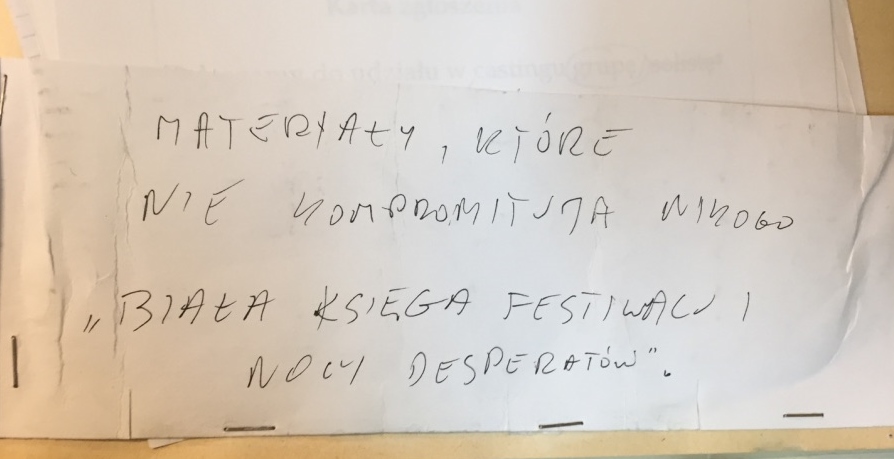 Karta zgłoszenia
do udziału w castingu grupę/solistę
MATERYAŁY, KTÓRE
NIE KOMPROMITUJA NIKOGO
„BIAŁA KSIĘGA FESTIWALU I
NOCY DESPERATÓW".